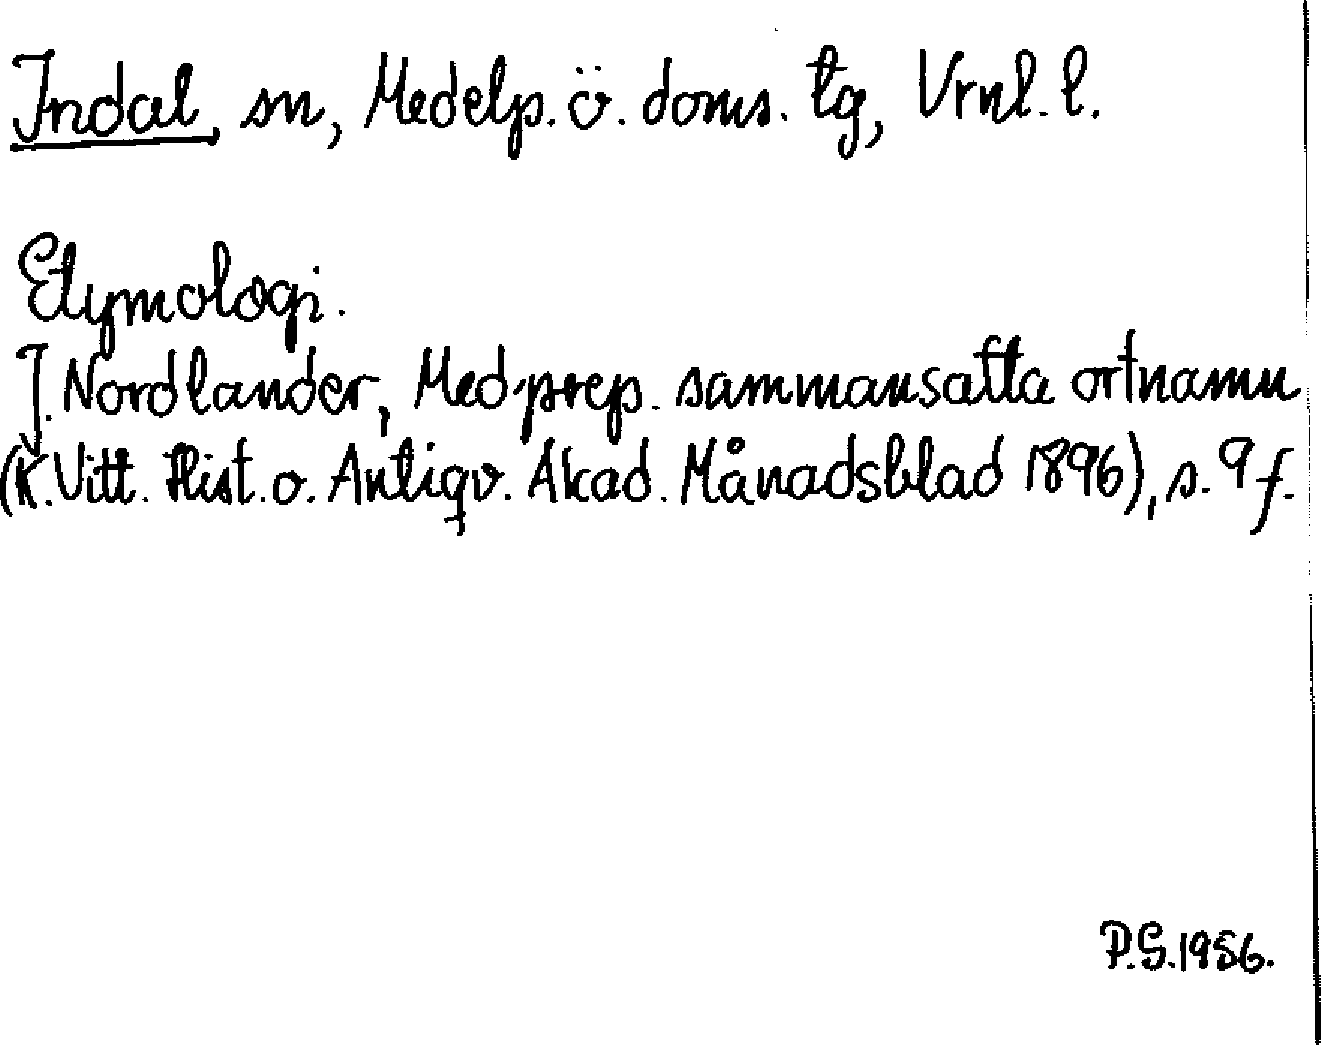 Indal, sn, Medelp. ö. doms. tg, Vrnl. l.
Etymologi.
J. Nordlander, Med prep. sammansatta ortnamn
(K. Vitt. Hist. o. Antiqv. Akad. Månadsblad 1896), s. 9 f.
P.G. 1956.